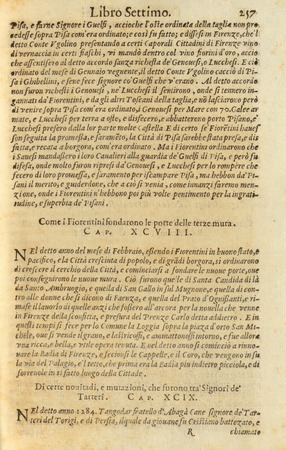 Libro Settimo. 257
Pisa, e farne Signore i Guelfi, accioche l'oste ordinata della taglia non pro
cedesse sopra Pisa com'era ordinato; e così fu fatto; e dissesi in Firenze, che'l
detto Conte Vgolino presentandosi a certi caporali Cittadini di Firenze vino
di vernaccia in certi fiaschi, vi mandò dentro col vino fiorini d'oro, accio
che assentissero al detto accordo sanza richesta de' Genouesi, o Lucchesi. E cio
ordinato del mese di Gennaio vegnente, il detto Conte Vgolino cacciò di Pi-
sa i Ghibellini, e fece fece signore co' Guelfi che v'erano. Al detto accordo
non furon richesti i Genouesi, ne' Lucchesi si lensero, onde si tennero in-
gannati da' Fiorentini, e da gli altri Toscani della taglia, nè lasciarono però
di venire sopra Pisa com'era ordinato, i Genouesi per Mare con 70. Galee ar-
mate, e Lucchesi per terra a oste, e disfecero, e abbatterono porto Pisano, e
Lucchesi presero dalla lor parte molte castella. E di certo se' Fiorētini hauess
son seguita la promessa, e saramēto, la Città di Pisa sarebbe stata presa, e dis
fatta, e recata a borgora, com'era ordinato. Ma i Fiorentini ordinarono che
i Sanesi mandassero loro Caualieri alla guardia de' Guelfi di Pisa, e però fu
disesa, onde molto furon ripresi da' Genouesi, e Lucchesi per lo rompere che
fecero di loro promessa, e saramento per iscampare Pisa, ma hebbono da' Pi-
sani il merito, e guiderdone, che a ciò si venia, come innanzi faremo men-
zione, onde i Fiorentini n'hebbono poi più volte pentimento per la ingrati-
tudine, e superbia de' Pisani.
Come i Fiorentini fondarono le porte delle terze mura.
CAP. XCVIII.
NEl detto anno del mese di Febbraio, essendo i Fiorentini in buono stato, e
pacifico, e la Città cresciuta di popolo, e di grādi borgora, si ordinarono
di crescere il cerchio della Città, e cominciarsi a fondare le nuoue porte, oue
poi conseguirono le nuoue mura. Ciò furono quelle di Santa Candida di là
da Santo Ambruogio, e quella di San Gallo in sul Mugnone, e quella di con-
tro alle donne che si dicono di Faenza, e quella del Prato d'Ognissanti, e ri-
mase il lauorìo di quelle anzi che fossero all'arcora per la nouella che venne
in Firenze della sconfitta, e presura del Prenze Carlo detta addietro. E in
quelli tempi si fece per lo Comune la Loggia sopra la piazza d'orto San Mi-
chele, oue si vende il grano, e lastricossi, e ammattonossi intorno, e fu allora
vna ricca, e bella, e vtile opera tenuta. E nel detto anno si cominciò a rinno-
uare la Badia di Firenze, e fecionsi le Cappelle, e il Coro, che vengono in su
la via del Palagio, e'l tetto, che prima era la Badia più indietro piccola, e di-
sorrenole in sì fatto luogo della Cittade.
Di certe nouitadi, e mutazioni, che furono tra' Signori de'
Tarteri. CAP. XCIX.
NEl detto anno 1284. Tangodar fratello d'Abagà Cane signore de' Tar-
teri del Torigi, e di Persia, il quale da giouane fu Cristiano battezato, e
R chiamato